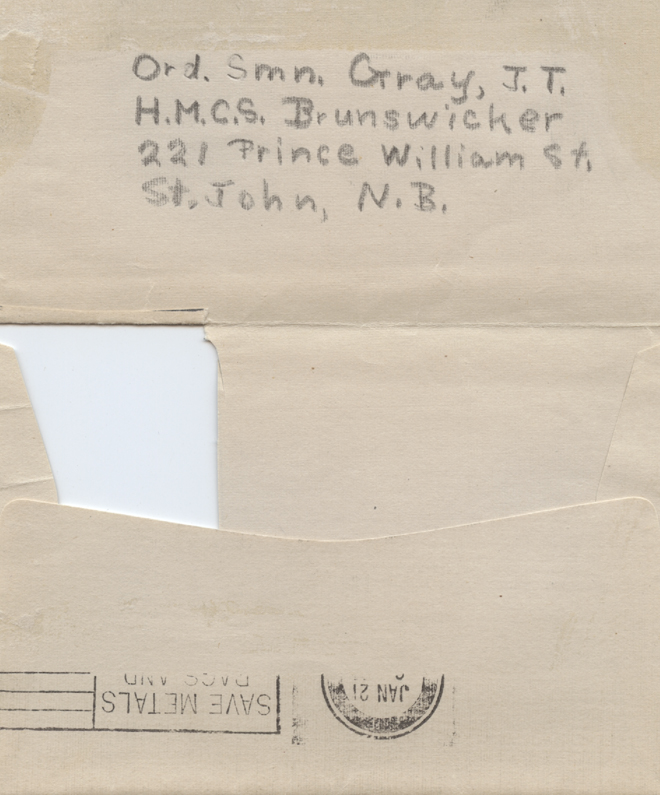 Ord. Smn. Gray, J. T.
H.M.C.S. Brunswicker
221 Prince William St.
St. John, N.B.
SAVE METALS
RAGS AND
JAN 21